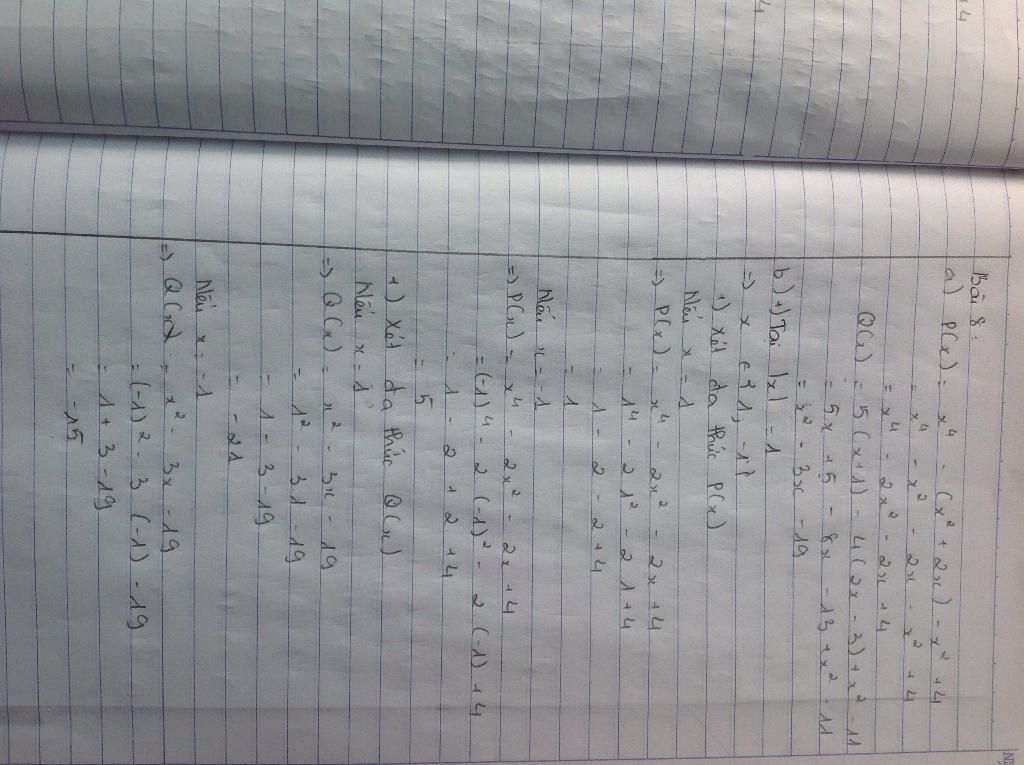 Bài 8:
a) P(x) = x⁴ - (x² + 2x) - x² + 4
= x⁴ - x² - 2x - x² + 4
= x⁴ - 2x² - 2x + 4
Q(x) = 5(x+1) - 4(2x - 3) + x² - 11
= 5x + 5 - 8x - 13 + x² - 11
= x² - 3x - 19
b) +) Tại |x| = 1
=> x ∈ {1, -1}
+) Xét đa thức P(x)
Nếu x = 1
=> P(x) = x⁴ - 2x² - 2x + 4
= 1⁴ - 2 1² - 2 1 + 4
= 1 - 2 - 2 + 4
= 1
Nếu x = -1
=> P(x) = x⁴ - 2x² - 2x + 4
= (-1)⁴ - 2 (-1)² - 2 (-1) + 4
= 1 - 2 + 2 + 4
= 5
+) Xét đa thức Q(x)
Nếu x = 1
=> Q(x) = x² - 3x - 19
= 1² - 3 1 - 19
= 1 - 3 - 19
= - 21
Nếu x = -1
=> Q(x) = x² - 3x - 19
= (-1)² - 3 (-1) - 19
= 1 + 3 - 19
= -15